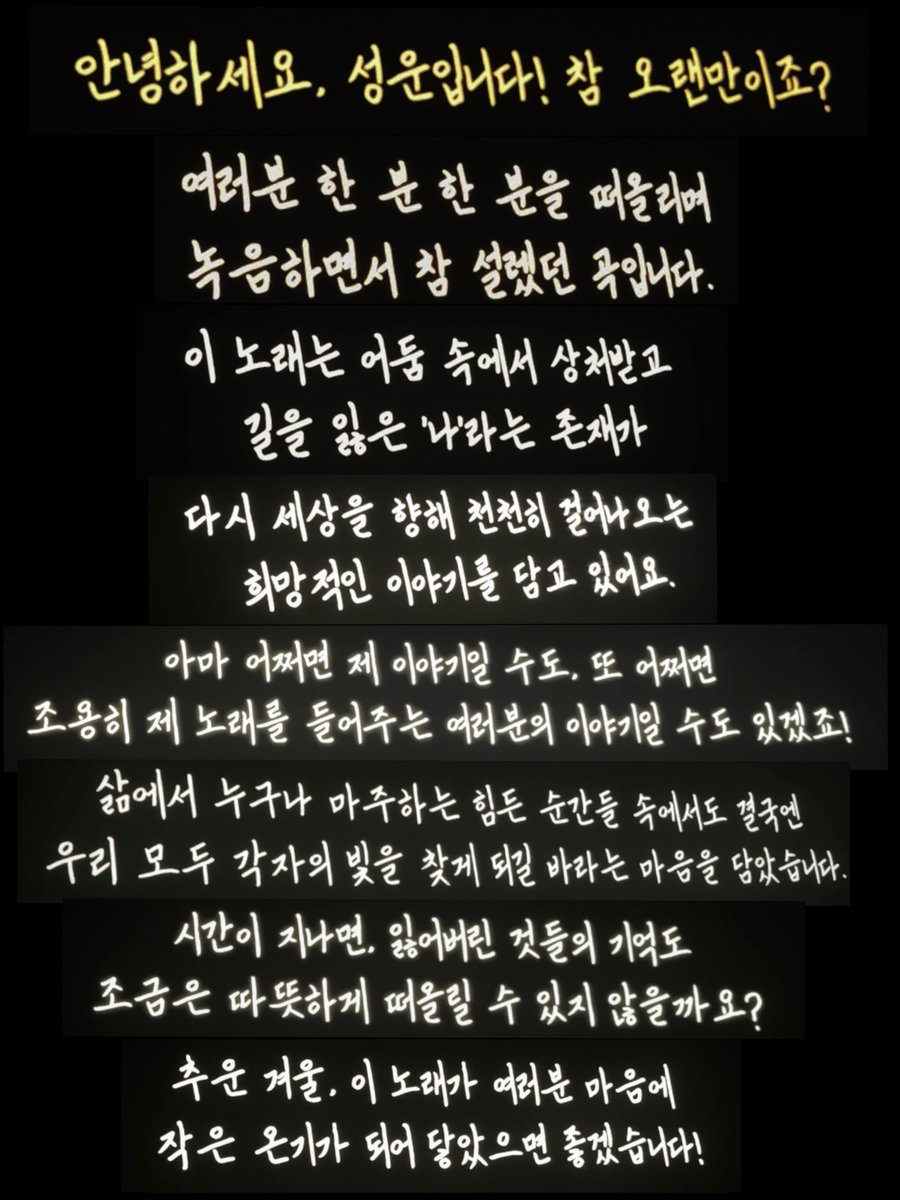 안녕하세요, 성운입니다! 참 오랜만이죠?
여러분 한 분 한 분을 떠올리며
녹음하면서 참 설렜던 곡입니다.
이 노래는 어둠 속에서 상처받고
길을 잃은 '나'라는 존재가
다시 세상을 향해 천천히 걸어나오는
희망적인 이야기를 담고 있어요.
아마 어쩌면 제 이야기일 수도, 또 어쩌면
조용히 제 노래를 들어주는 여러분의 이야기일 수도 있겠죠!
삶에서 누구나 마주하는 힘든 순간들 속에서도 결국엔
우리 모두 각자의 빛을 찾게 되길 바라는 마음을 담았습니다.
시간이 지나면, 잃어버린 것들의 기억도
조금은 따뜻하게 떠올릴 수 있지 않을까요?
추운 겨울, 이 노래가 여러분 마음에
작은 온기가 되어 닿았으면 좋겠습니다!